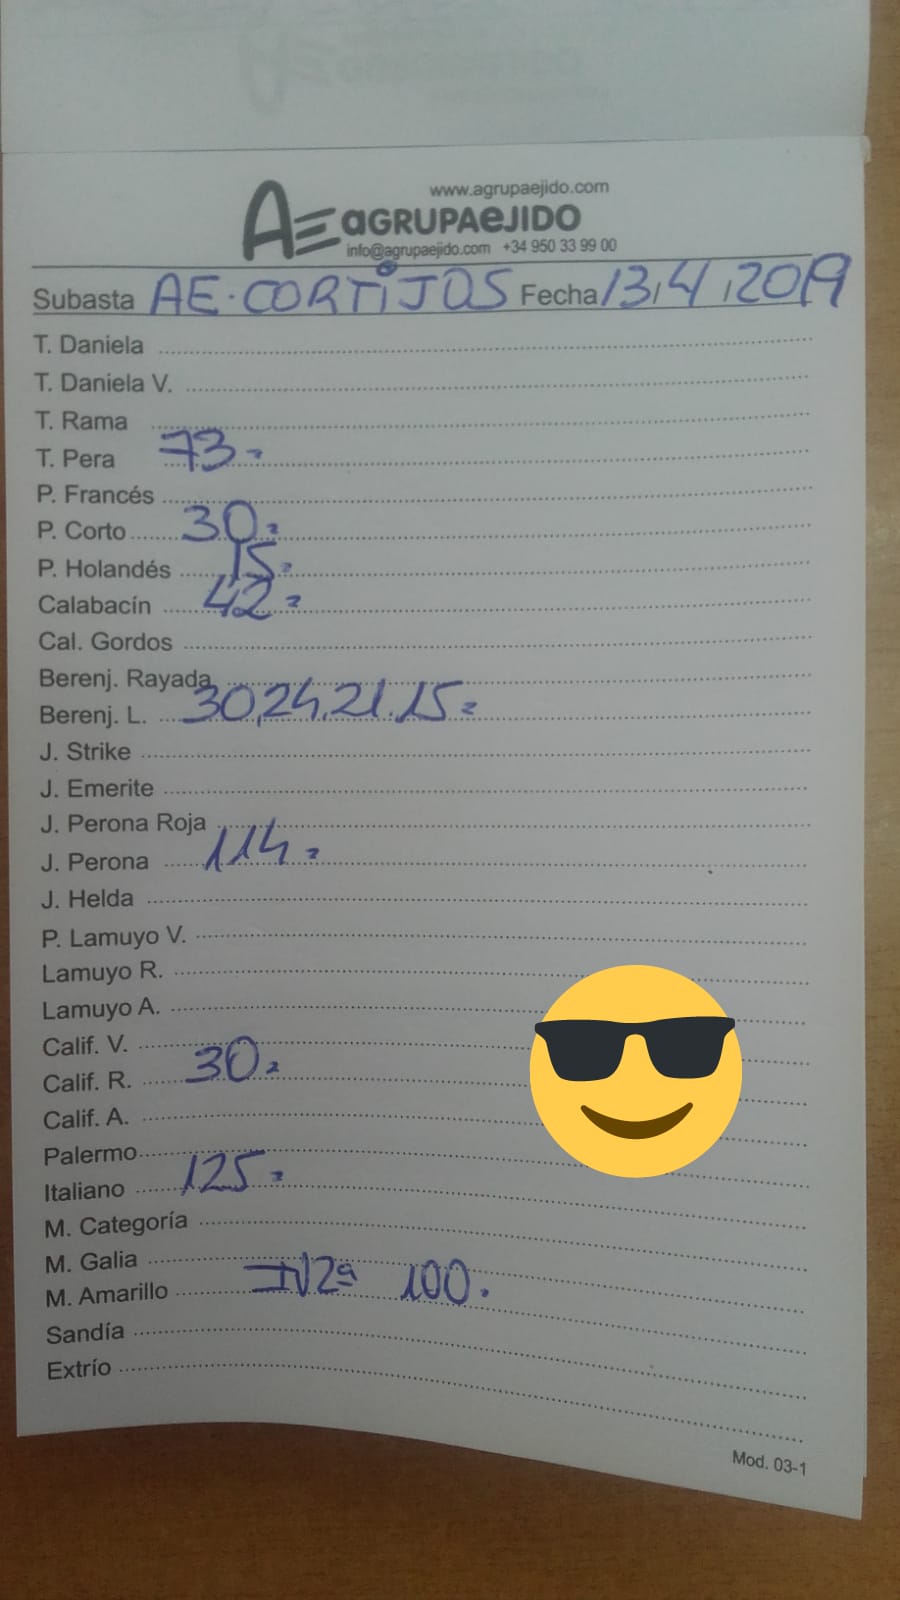 www.agrupaejido.com
AE aGRUPAeJIDO
info@agrupaejido.com +34 950 33 99 00
Subasta AE. CORTIJOS Fecha 13,4,2019
T. Daniela
T. Daniela V.
T. Rama
T. Pera 73=
P. Francés
P. Corto 30=
P. Holandés 15=
Calabacín 42=
Cal. Gordos
Berenj. Rayada
Berenj. L. 30,24,21.15=
J. Strike
J. Emerite
J. Perona Roja
J. Perona 114=
J. Helda
P. Lamuyo V.
Lamuyo R.
Lamuyo A.
Calif. V.
Calif. R. 30=
Calif. A.
Palermo
Italiano 125=
M. Categoría
M. Galia
M. Amarillo 2ª 100.
Sandía
Extrío
Mod. 03-1